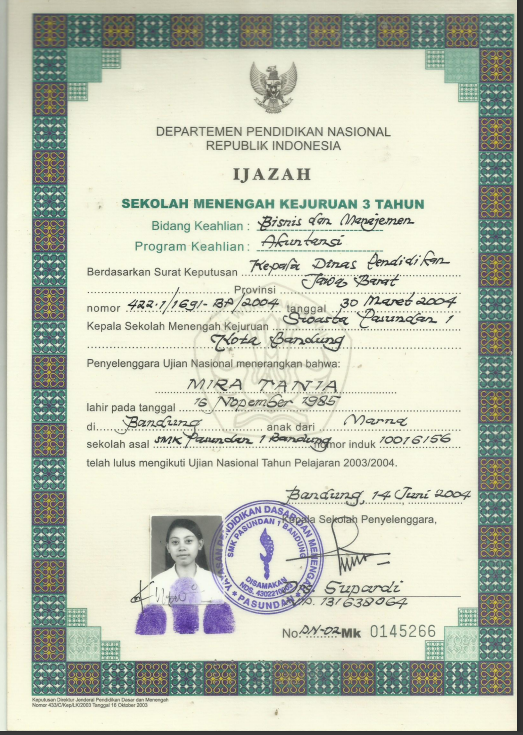 DEPARTEMEN PENDIDIKAN NASIONAL
REPUBLIK INDONESIA
IJAZAH
SEKOLAH MENENGAH KEJURUAN 3 TAHUN
Bidang Keahlian : Bisnis dan Manajemen
Program Keahlian : Akuntansi
Berdasarkan Surat Keputusan Kepala Dinas Pendidikan
Provinsi Jawa Barat
nomor 422.1/1691-BP/2004 tanggal 30 Maret 2004
Kepala Sekolah Menengah Kejuruan Swasta Pasundan 1
Kota Bandung
Penyelenggara Ujian Nasional menerangkan bahwa:
MIRA TANIA
lahir pada tanggal 16 Nopember 1985
di Bandung anak dari Marna
sekolah asal SMK Pasundan 1 Bandung nomor induk 10016156
telah lulus mengikuti Ujian Nasional Tahun Pelajaran 2003/2004.
Bandung, 14 Juni 2004
Kepala Sekolah Penyelenggara,
YAYASAN PENDIDIKAN DASAR DAN MENENGAH
SMK PASUNDAN 1 BANDUNG
DISAMAKAN
PASUNDAN
Supardi
131638064
No. DN-02 Mk 0145266
Keputusan Direktur Jenderal Pendidikan Dasar dan Menengah
Nomor 433/C/Kep/LK/2003 Tanggal 16 Oktober 2003